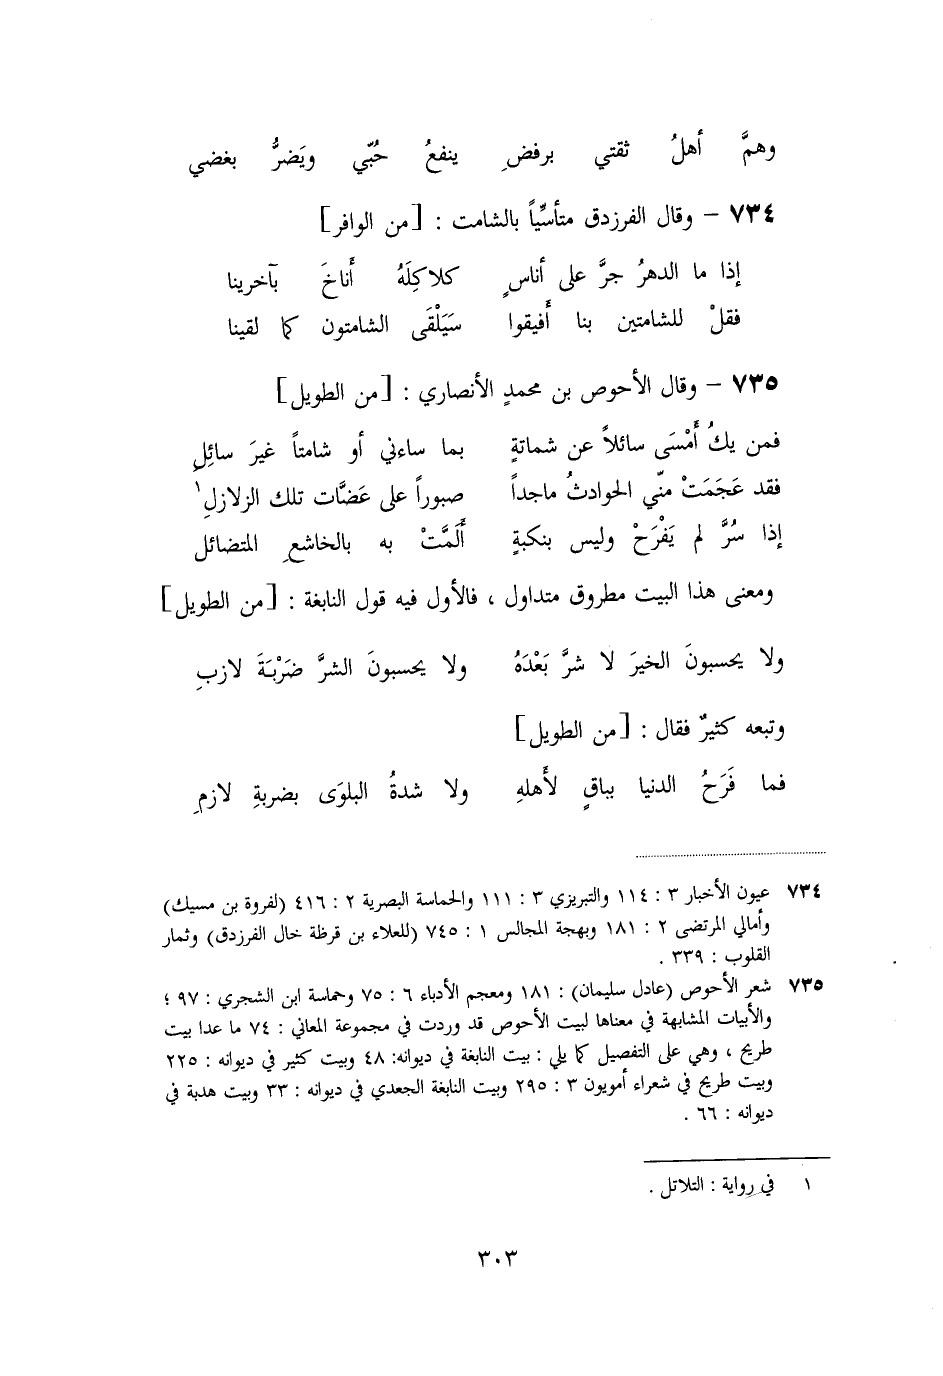 وهمَّ أهلُ ثقتي برفضِ ينفعُ حُبّي ويَضرُّ بغضي
٧٣٤ – وقال الفرزدق متأسِّياً بالشامت : [من الوافر]
إذا ما الدهرُ جرَّ على أناسٍ كلاكِلَهُ أَناخَ بآخرينا
فقلْ للشامتين بنا أَفيقوا سَيَلْقَى الشامتون كما لقينا
٧٣٥ – وقال الأحوص بن محمدٍ الأنصاري : [من الطويل]
فمن يكُ أَمْسَى سائلاً عن شماتةٍ بما ساءني أو شامتاً غيرَ سائِلِ
فقد عَجَمَتْ منّي الحوادثُ ماجداً صبوراً على عَضَّات تلك الزلازلِ١
إذا سُرَّ لم يَفْرَحْ وليس بنكبةٍ أَلَمَّتْ به بالخاشعِ المتضائل
ومعنى هذا البيت مطروق متداول ، فالأول فيه قول النابغة : [من الطويل]
ولا يحسبونَ الخيرَ لا شرَّ بَعْدَهُ ولا يحسبونَ الشرَّ ضَرْبَةَ لازبِ
وتبعه كثيرٌ فقال : [من الطويل]
فما فَرَحُ الدنيا بباقٍ لأَهلهِ ولا شدةُ البلوَى بضربةِ لازمِ
٧٣٤ عيون الأخبار ٣ : ١١٤ والتبريزي ٣ : ١١١ والحماسة البصرية ٢ : ٤١٦ (لفروة بن مسيك)
وأمالي المرتضى ٢ : ١٨١ وبهجة المجالس ١ : ٧٤٥ (للعلاء بن قرظة خال الفرزدق) وثمار
القلوب : ٣٣٩ .
٧٣٥ شعر الأحوص (عادل سليمان) : ١٨١ ومعجم الأدباء ٦ : ٧٥ وحماسة ابن الشجري : ٩٧ ؛
والأبيات المشابهة في معناها لبيت الأحوص قد وردت في مجموعة المعاني : ٧٤ ما عدا بيت
طريح ، وهي على التفصيل كما يلي : بيت النابغة في ديوانه: ٤٨ وبيت كثير في ديوانه : ٢٢٥
وبيت طريح في شعراء أمويون ٣ : ٢٩٥ وبيت النابغة الجعدي في ديوانه : ٣٣ وبيت هدبة في
ديوانه : ٦٦ .
١ في رواية : التلاتل .
٣٠٣